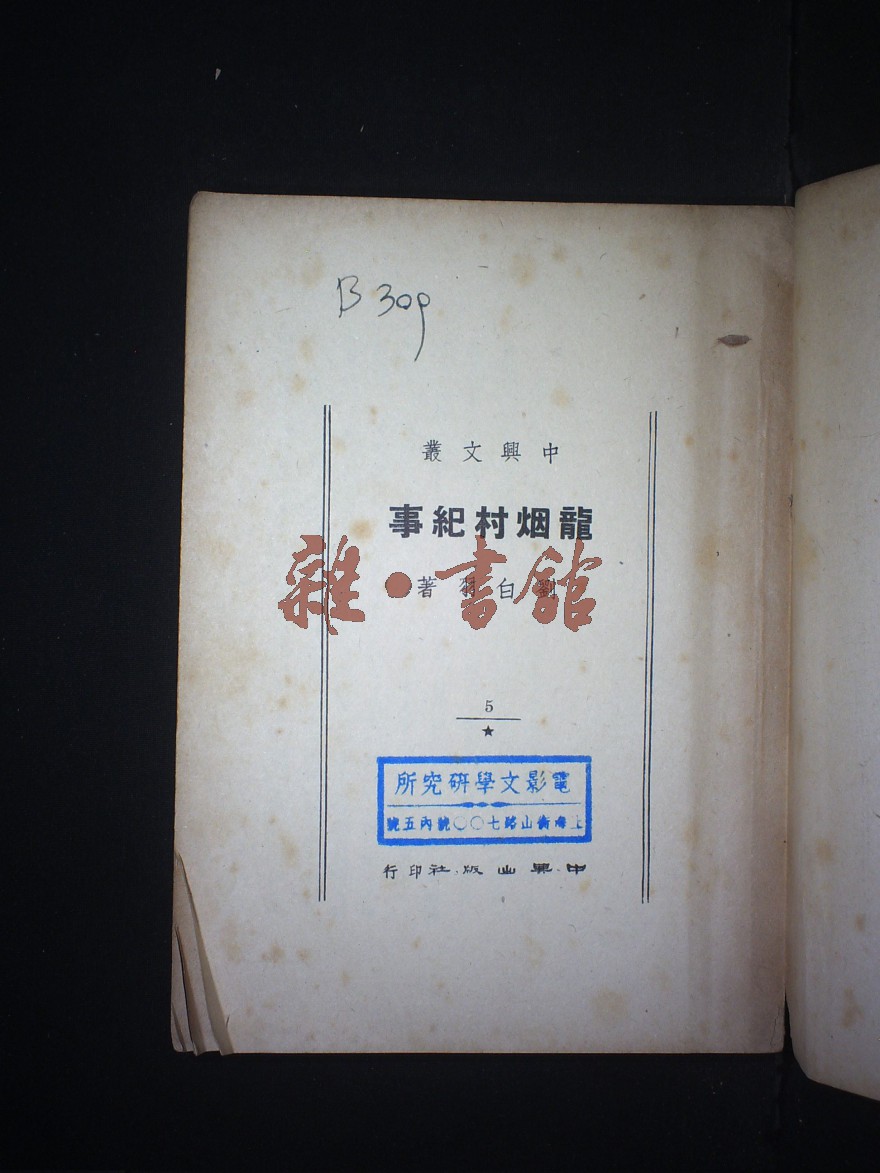 B 309
中興文叢
龍烟村紀事
劉白羽著
雜·書館
5
★
電影文學研究所
上海衡山路七〇〇號內五號
中興出版社印行